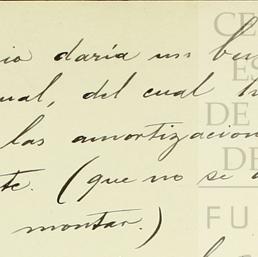 io daría un ben
ual, del cual h
las amortizacion
te. (que no se a
montar.)
CE
ES
DE
DE
FU